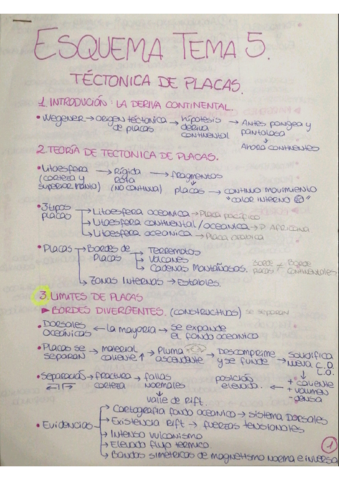 ESQUEMA TEMA 5.
TÉCTONICA DE PLACAS.
1. INTRODUCIÓN: LA DERIVA CONTINENTAL.
• Wegener → origen téctonica de placas → hipótesis deriva continental → Antes pangea y pantalasa
→ Ahora continentes
2. TEORÍA DE TECTONICA DE PLACAS.
• Litosfera (corteza y superior manto) → Rígida rota (no continua) → fragmentos
placas → continuo movimiento
"calor interno"
• 3 tipos placas → Litosfera oceánica → Placa pacífica
→ Litosfera continental/oceánica → P. Africana
→ Litosfera oceanica →
• Placas → Bordes de Placas → Terremotos
→ Volcanes
→ Cadenas Montañosas.
→ Zonas Internas → Estables.
3. LIMITES DE PLACAS
► BORDES DIVERGENTES. (CONSTRUCTIVOS) se separan
• Dorsales oceánicas ← la mayoría → se expande el fondo oceánico
• Placas se separan → material caliente ↑ → Pluma ascendente → Descomprime y se funde → solidifica nueva C.O.
• Separación → fractura corteza → fallas normales
valle de Rift
posición elevada ← + caliente
+ volumen
- densa
• Evidencias → Cartografía fondo oceanico → sistema dorsales
→ Existencia Rift → fuerzas tensionales
→ Intenso vulcanismo
→ Elevado flujo termico
→ Bandas simetricas de magnetismo norma e inversa
1